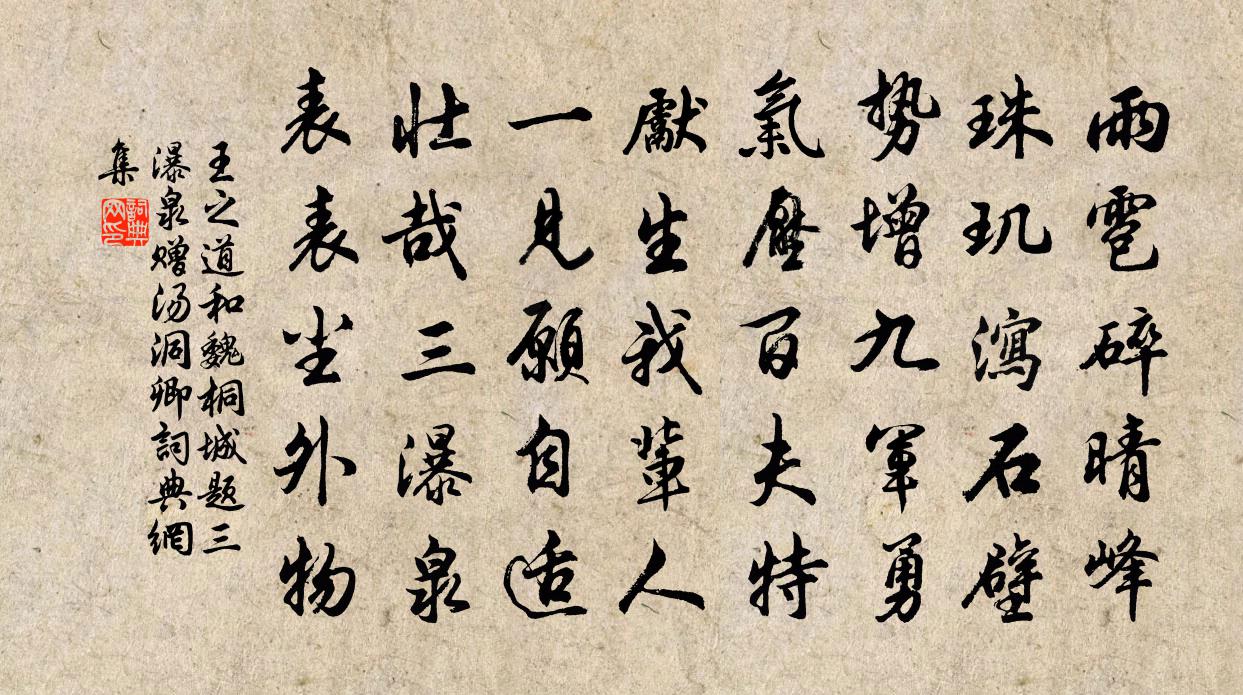 雨雹碎晴峰
珠玑瀉石壁
势增九軍勇
氣壓百夫特
獻生我輩人
一見願自适
壮哉三瀑泉
表表尘外物
王之道和魏桐城题三
瀑泉赠汤洞卿詞典網
集
詞典网印